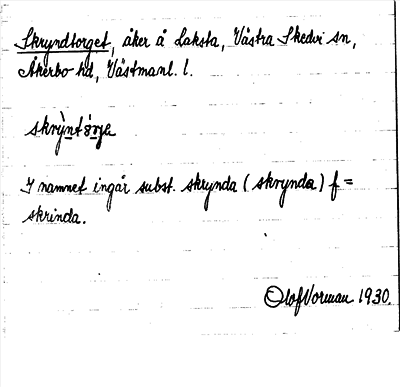 Skryndtorget, åker å Laksta, Västra Skedvi sn,
Åkerbo hd, Västmanl. l.
I namnet ingår subst. skrynda (skrynda) f =
skrinda.
Olof Vorman 1930.